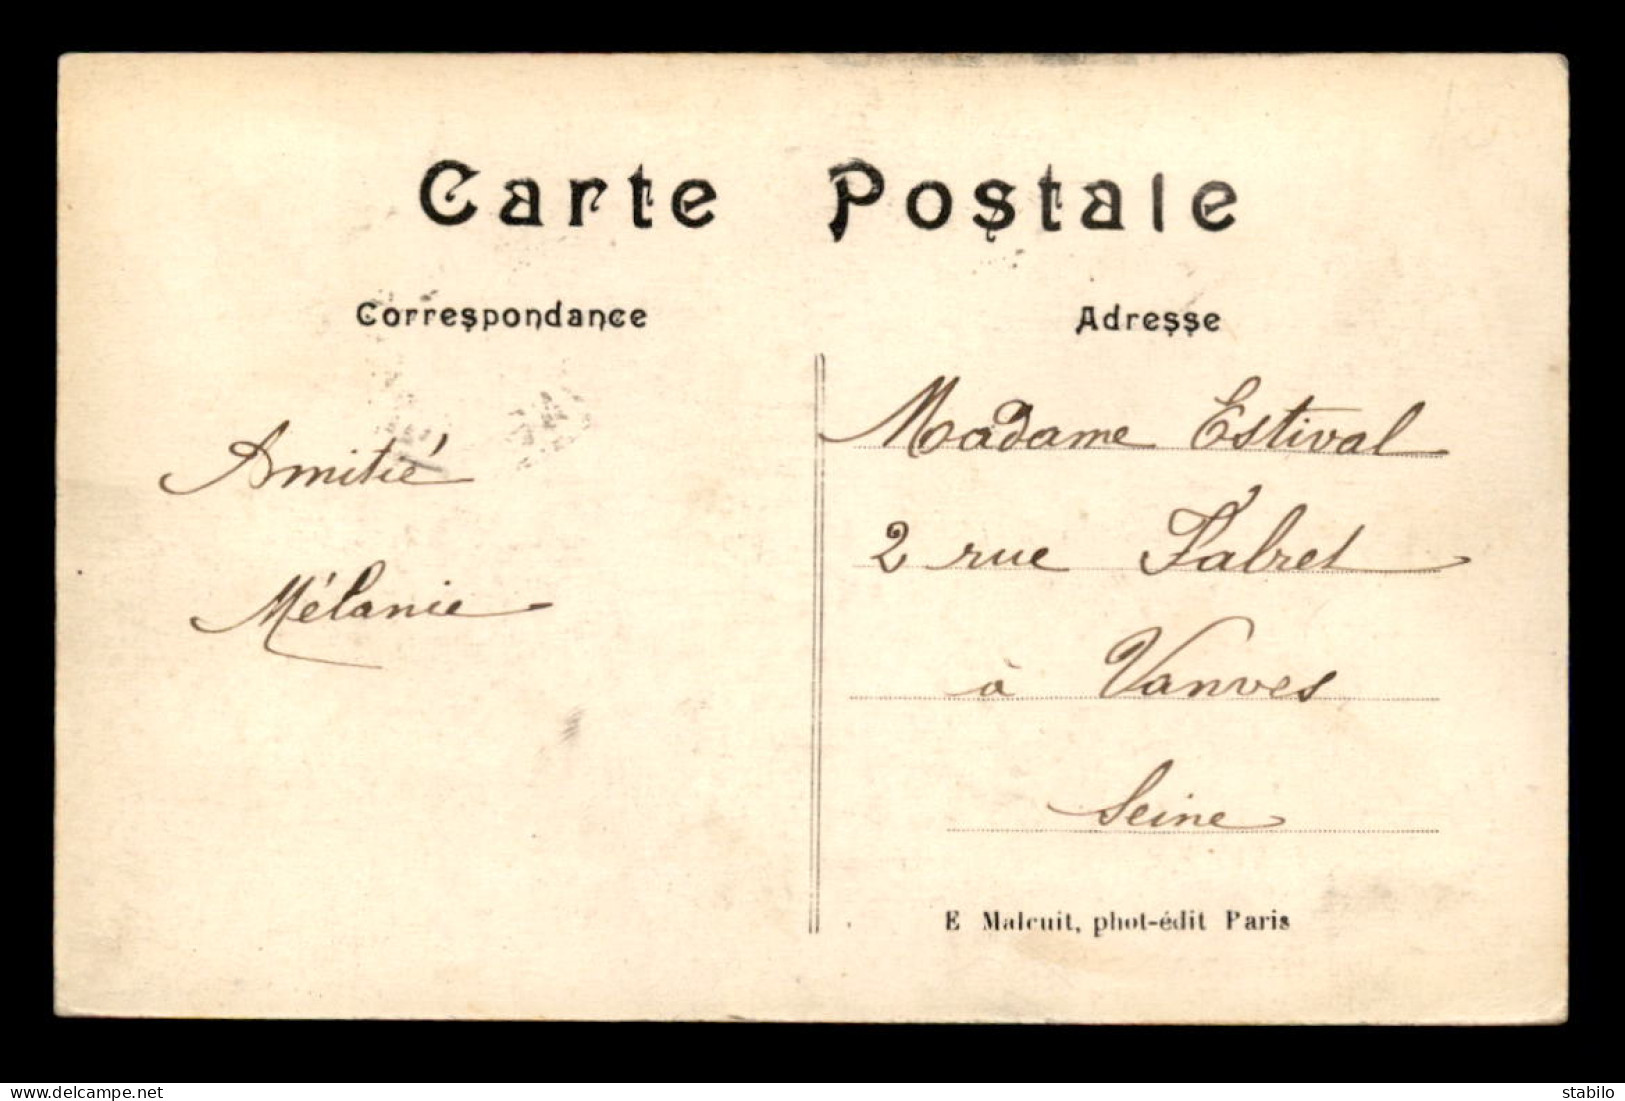 Carte Postale
Correspondance
Adresse
Amitié
Mélanie
Madame Estival
2 rue Falret
à Vanves
Seine
E Malcuit, phot-édit Paris
the-postcard.delcampe.net
stabilo